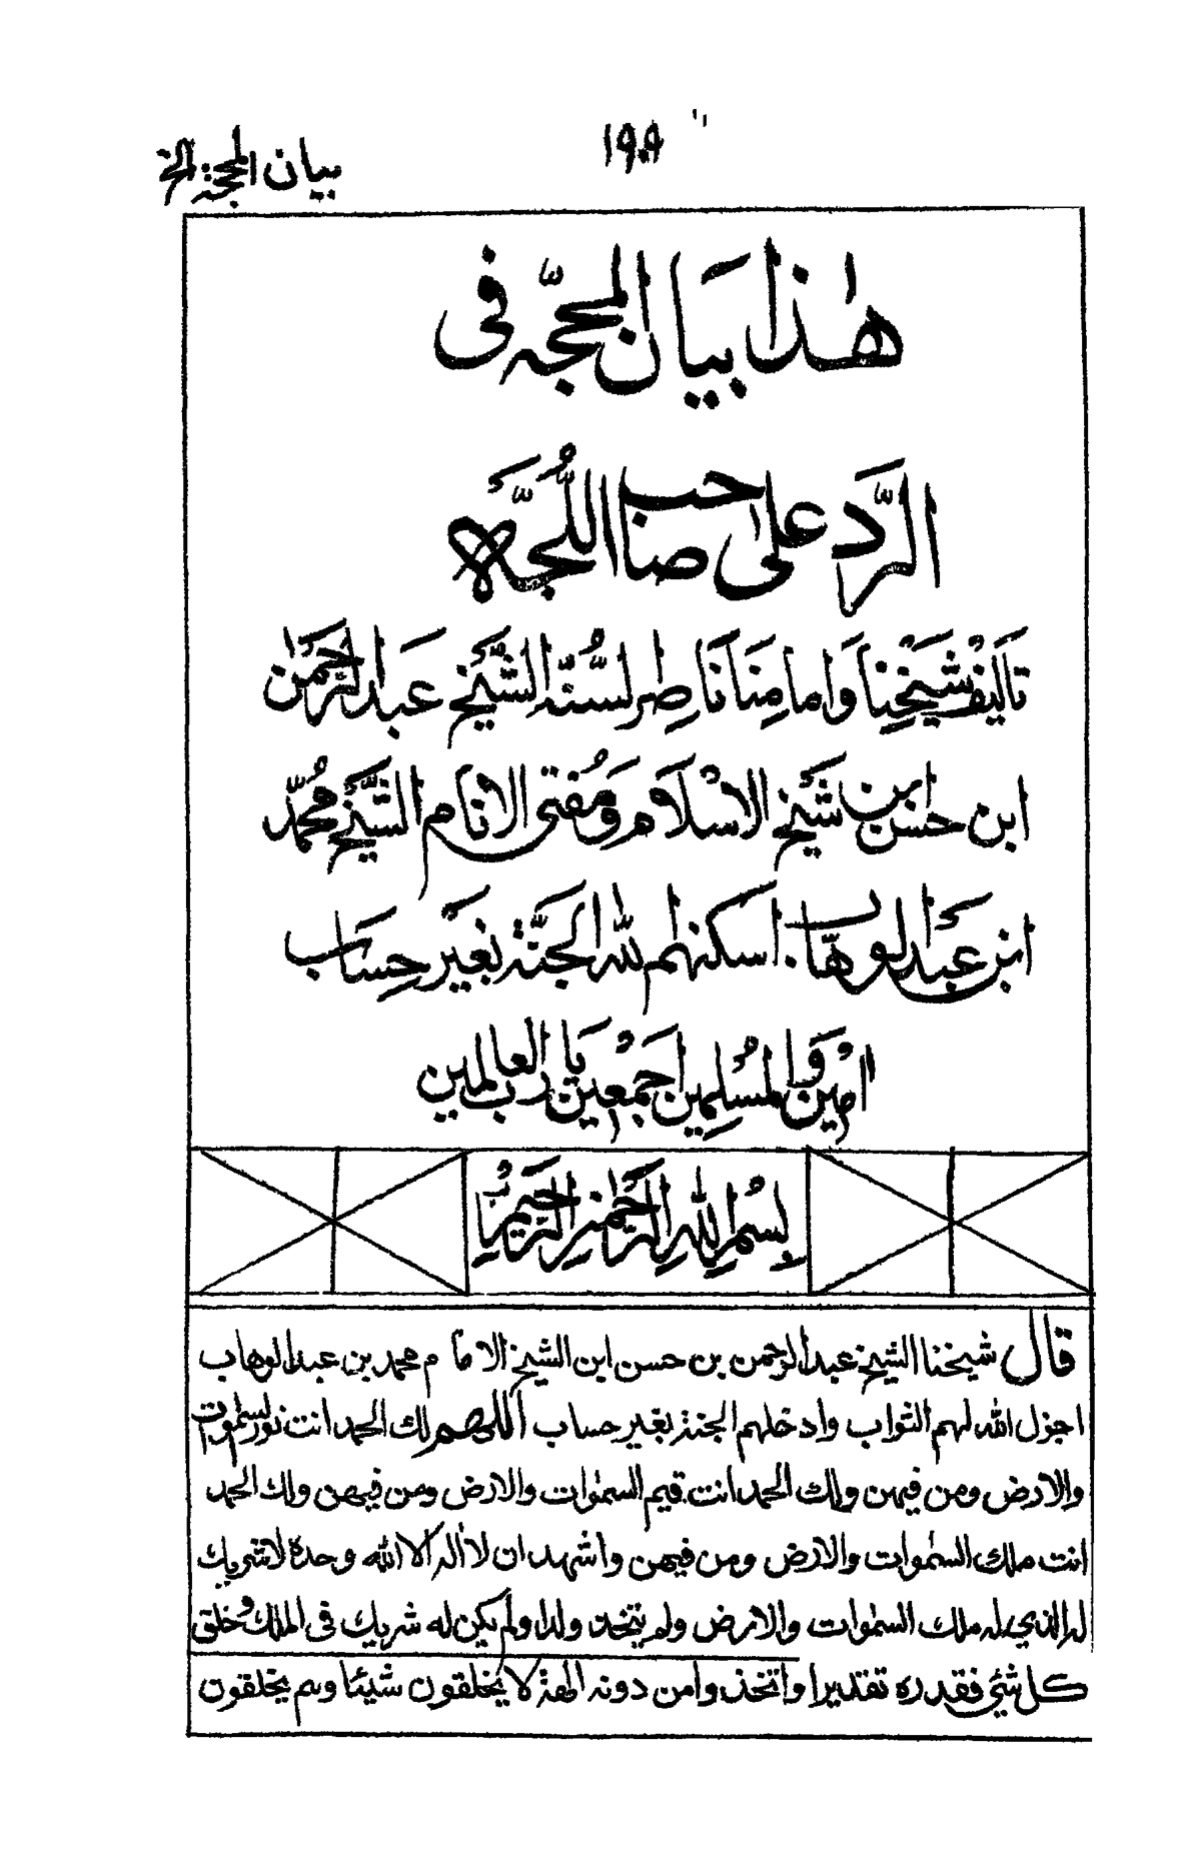 بيان المحجة الخ
هٰذا بيان المحجّه فى
الرَّد على صاحب اللُّجَّه
تاليف شَيْخِنا وَامامِنَا نَاصِر لسُّنّه الشَّيخ عَبد الرَّحمٰن
ابن حسن ابن شَيْخ الاسْلَام وَمُفتى الانام الشَّيْخ مُحمّد
ابن عَبد الوهّاب. اسكنهم لله الجَنّة بغَيْر حِسَاب
امْين وَالمسُلِمين اَجمَعْين يَا رَب العالمين
بِسْمِ اللهِ الرَّحْمٰنِ الرَّحِيْمِ
قال شيخنا الشيخ عبد الرحمن بن حسن ابن الشيخ الامام محمد بن عبد الوهاب
اجزل الله لهم الثواب وادخلهم الجنة بغير حساب اللهم لك الحمد انت نور السمٰوت
والارض ومن فيهن ولك الحمد انت قيم السمٰوات والارض ومن فيهن ولك الحمد
انت ملك السمٰوات والارض ومن فيهن واشهد ان لا اله الا الله وحده لا شريك
له الذي له ملك السمٰوات والارض ولم يتخذ ولدا ولم يكن له شريك فى الملك وخلق
كل شئ فقدره تقديرا واتخذوا من دونه الهة لا يخلقون شيئا وهم يخلقون